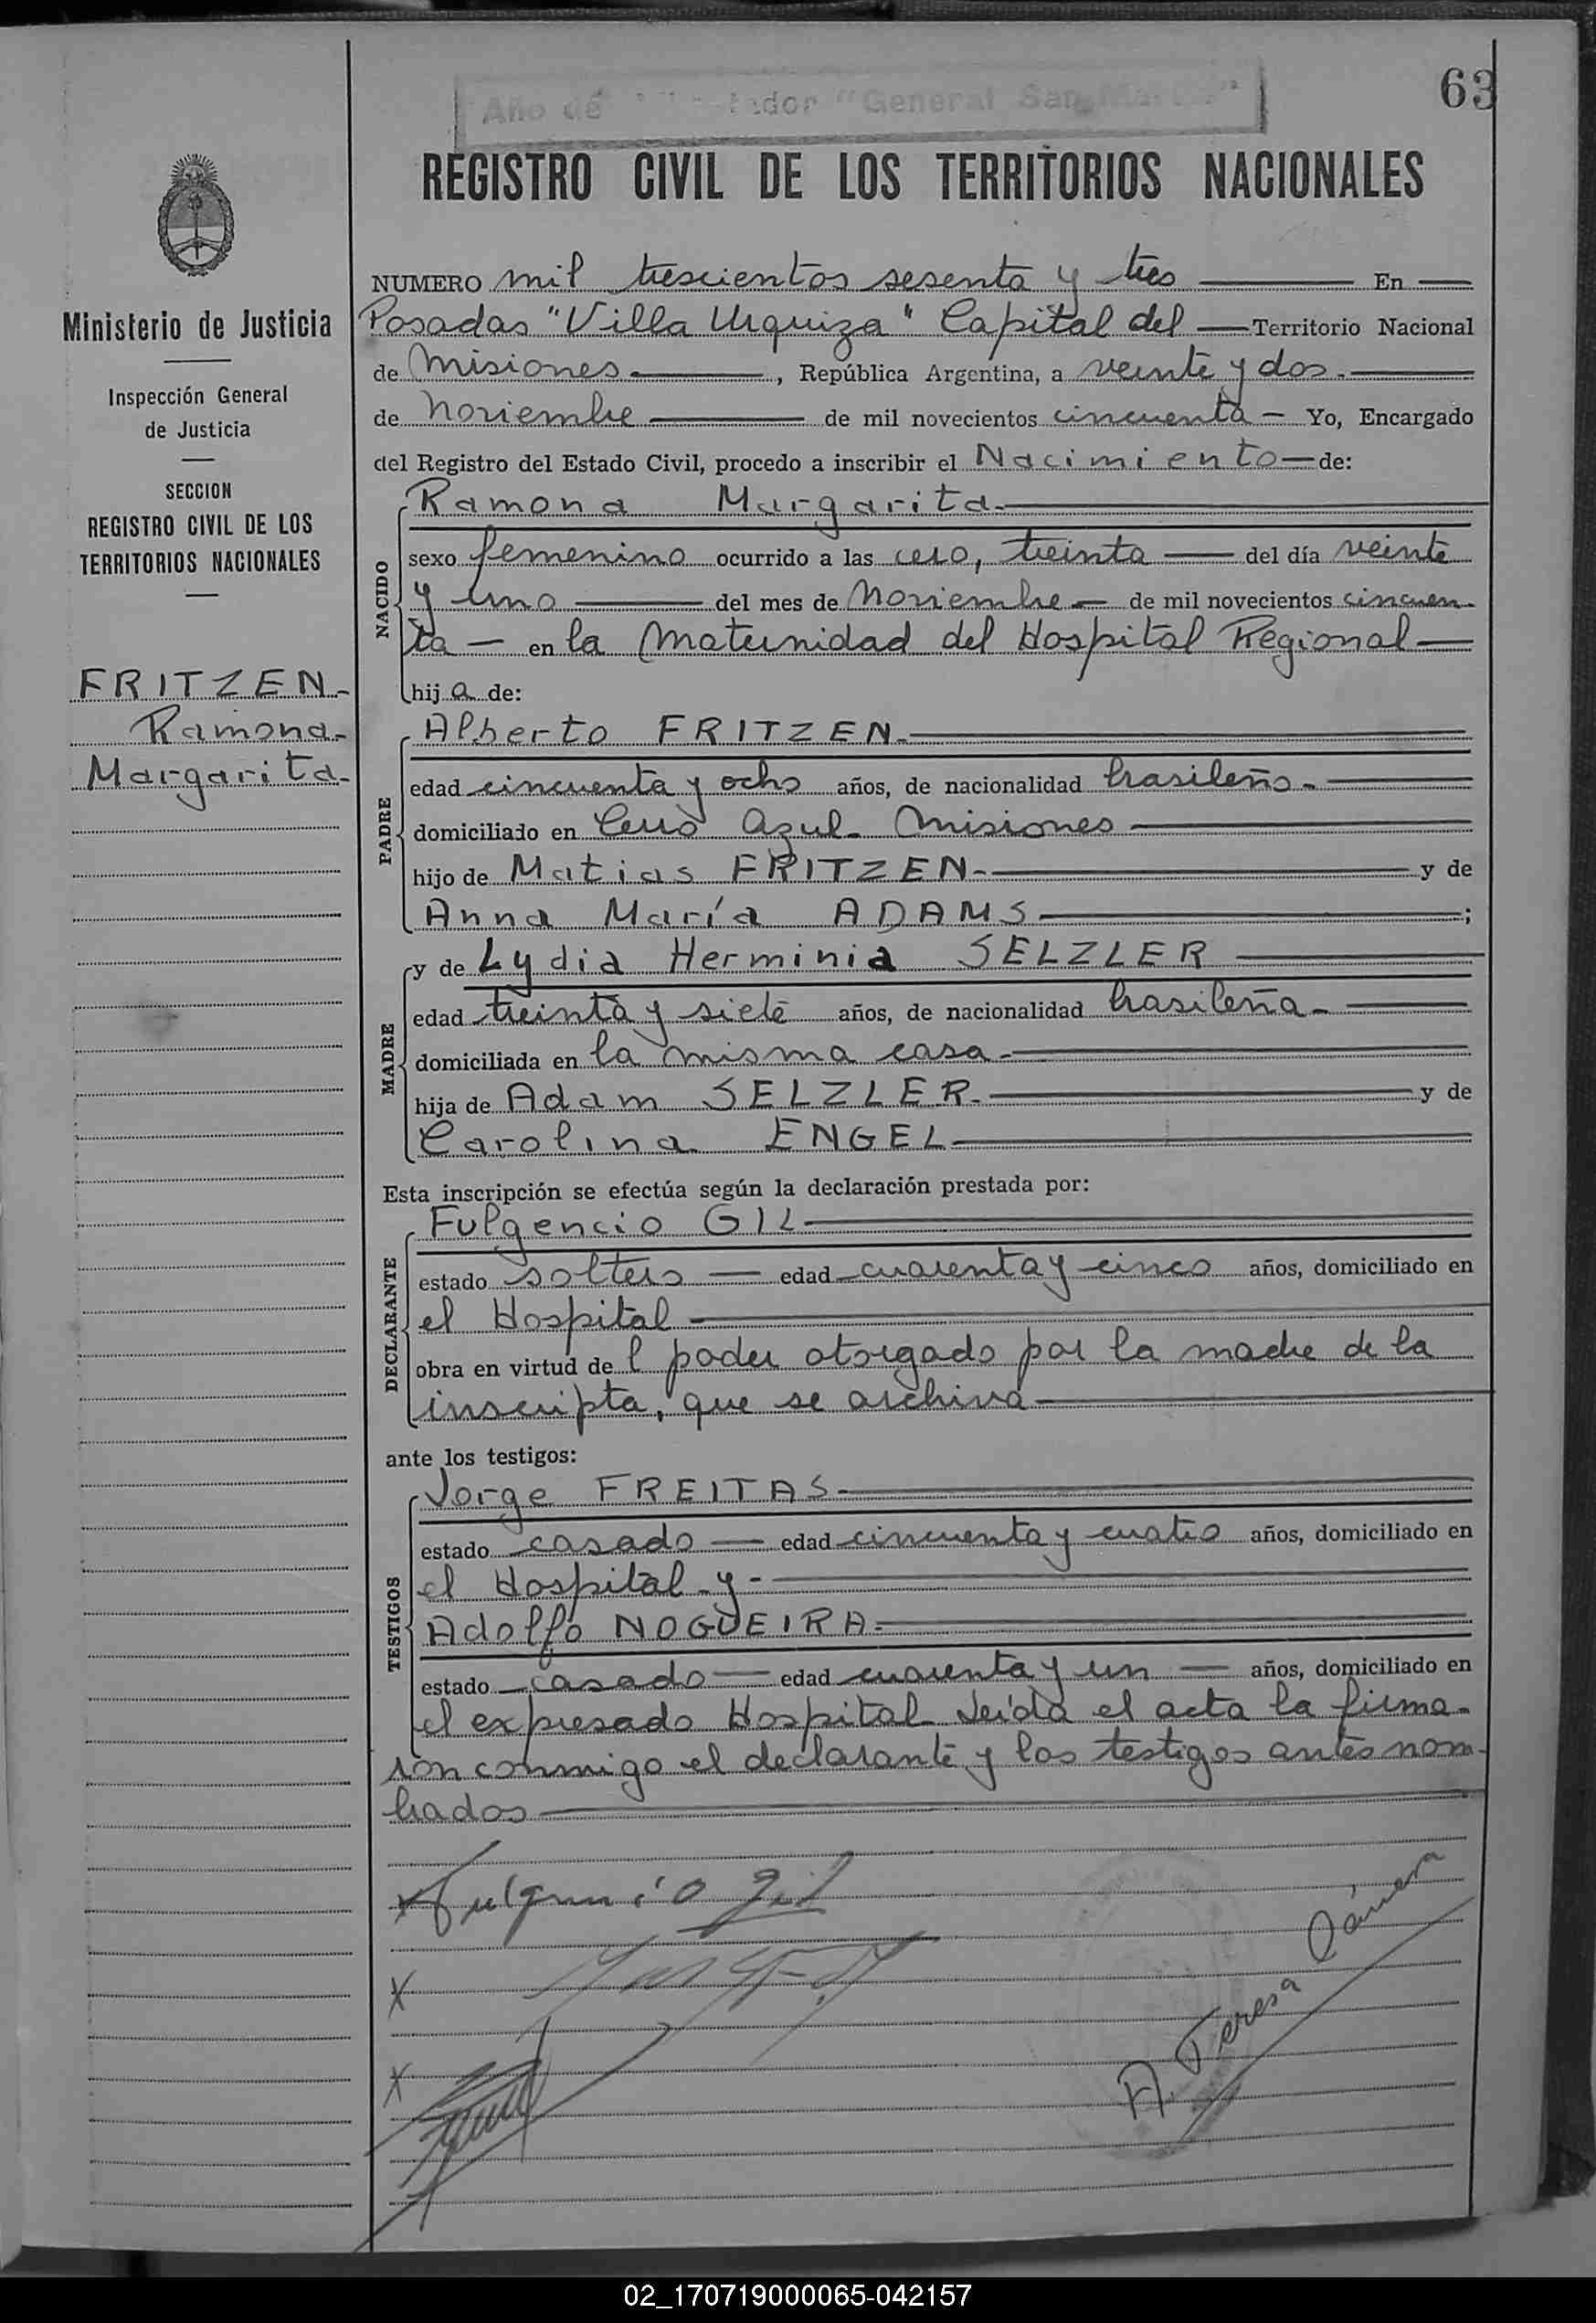 63
Año de tador "General San Martín"
REGISTRO CIVIL DE LOS TERRITORIOS NACIONALES
Ministerio de Justicia
Inspección General
de Justicia
SECCION
REGISTRO CIVIL DE LOS
TERRITORIOS NACIONALES
FRITZEN-
Ramona-
Margarita-
NUMERO mil trescientos sesenta y tres — En —
Posadas "Villa Urquiza" Capital del — Territorio Nacional
de Misiones. —, República Argentina, a veinte y dos. —
de Noviembre — de mil novecientos cincuenta — Yo, Encargado
del Registro del Estado Civil, procedo a inscribir el Nacimiento — de:
NACIDO
Ramona Margarita. —
sexo femenino ocurrido a las cero, treinta — del día veinte
y uno — del mes de Noviembre — de mil novecientos cincuen-
ta — en la Maternidad del Hospital Regional —
hij a de:
PADRE
Alberto FRITZEN. —
edad cincuenta y ocho años, de nacionalidad brasileño. —
domiciliado en Cerro Azul - Misiones —
hijo de Matias FRITZEN- — y de
Anna María ADAMS — ;
MADRE
y de Lydia Herminia SELZLER —
edad treinta y siete años, de nacionalidad brasileña. —
domiciliada en la misma casa. —
hija de Adam SELZLER. — y de
Carolina ENGEL —
Esta inscripción se efectúa según la declaración prestada por:
DECLARANTE
Fulgencio GIL —
estado soltero — edad cuarenta y cinco años, domiciliado en
el Hospital —
obra en virtud de l poder otorgado por la madre de la
inscripta, que se archiva —
ante los testigos:
TESTIGOS
Jorge FREITAS. —
estado casado — edad cincuenta y cuatro años, domiciliado en
el Hospital - y - —
Adolfo NOGUEIRA. —
estado casado — edad cuarenta y un — años, domiciliado en
el expresado Hospital Leída el acta la firma-
ron conmigo el declarante y los testigos antes nom-
brados —
x Fulgencio Gil
x
x
A. Teresa
02_170719000065-042157